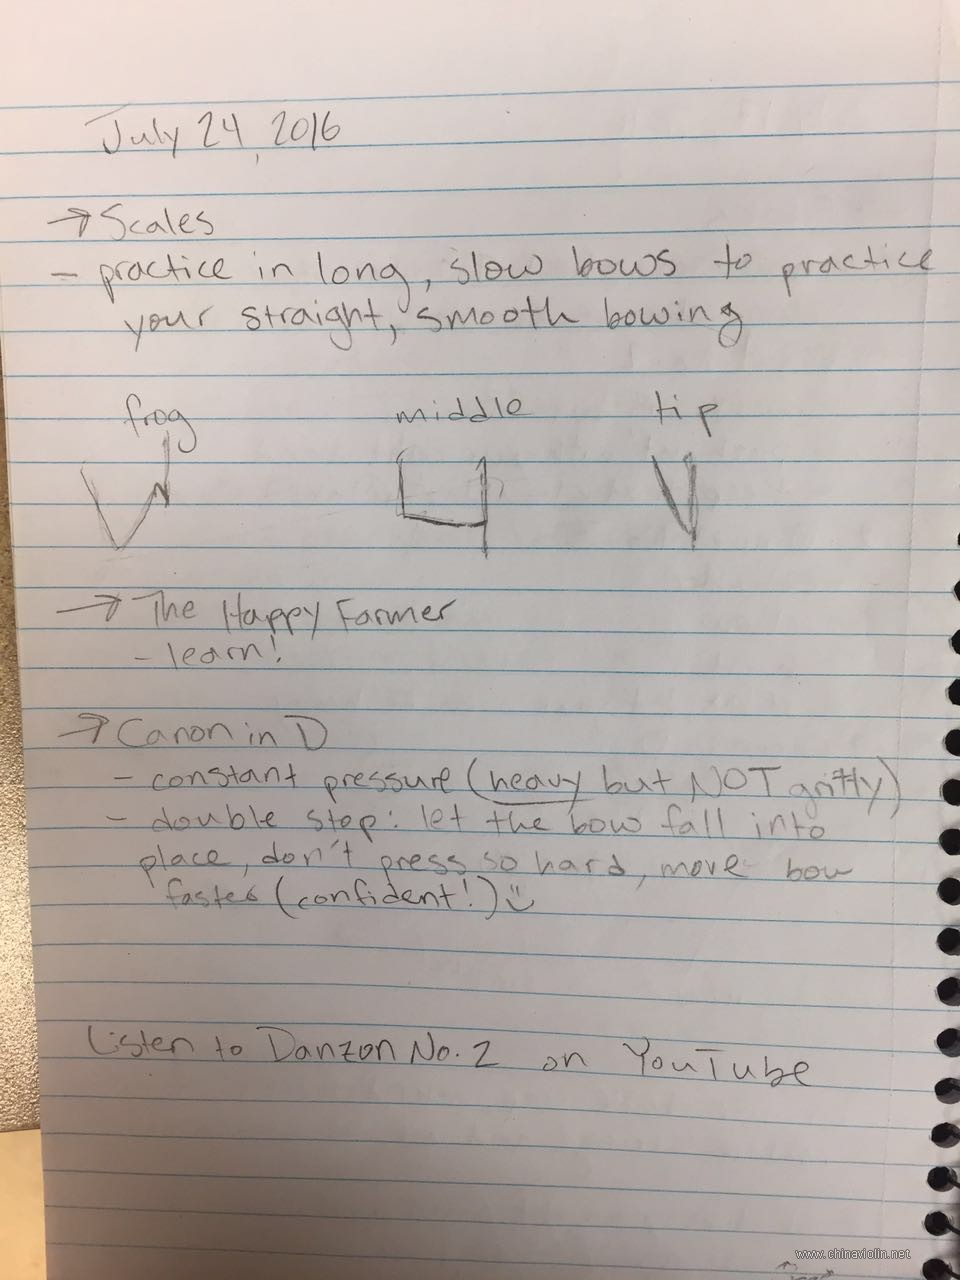 July 24, 2016
→ Scales
- practice in long, slow bows to practice
your straight, smooth bowing
frog middle tip
→ The Happy Farmer
- learn!
→ Canon in D
- constant pressure (heavy but NOT grittly)
- double stop: let the bow fall into
place, don't press so hard, move bow
faster (confident!) :)
Listen to Danzon No. 2 on YouTube
www.chinaviolin.net